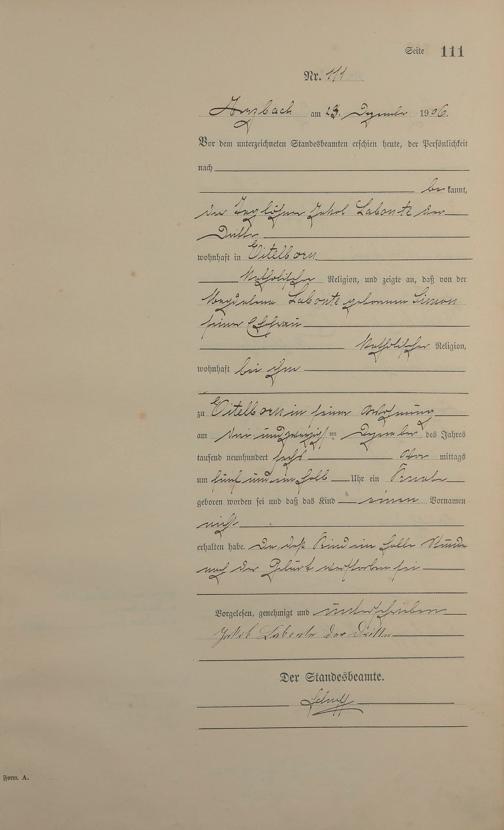 Seite 111
Nr. 111
Arzbach am 23. Dezember 1906.
Vor dem unterzeichneten Standesbeamten erschien heute, der Persönlichkeit
nach
bekannt,
der Taglöhner Jakob Labonte der
Dritte
wohnhaft in Eitelborn
Katholischer Religion, und zeigte an, daß von der
Magdalena Labonte geborenen Simon
seiner Ehefrau
Katholischer Religion,
wohnhaft bei ihm
zu Eitelborn in seiner Wohnung
am drei und zwanzigsten Dezember des Jahres
tausend neunhundert sechs Vor mittags
um fünf und ein halb Uhr ein Knabe
geboren worden sei und daß das Kind einen Vornamen
nicht
erhalten habe. Da das Kind ein halbe Stunde
nach der Geburt verstorben sei
Vorgelesen, genehmigt und unterschrieben
Jakob Labonte der Dritte
Der Standesbeamte.
Form. A.